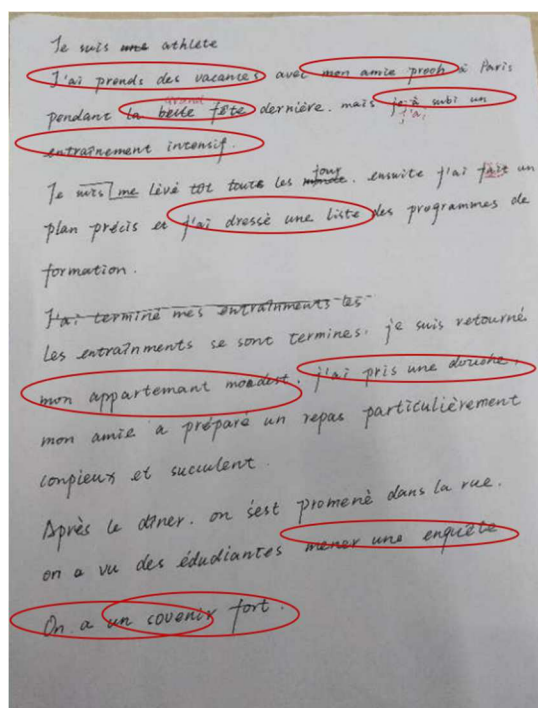 Je suis une athlète
J'ai prends des vacances avec mon amie prooh à Paris
grand
pendant la belle fête dernière. mais je à subi un
j'ai
entraînement intensif.
Je suis me lèvé tôt toute les jour ensuite j'ai fait un
plan précis et j'ai dressé une liste des programmes de
formation.
J'ai terminé mes entraînments les
Les entraînments se sont termines. je suis retourné
mon appartemant modest. j'ai pris une douche.
mon amie a préparé un repas particulièrement
conpieux et succulent.
Après le dîner. on s'est promenè dans la rue.
on a vu des édudiantes mener une enquête
On a un covenir fort.